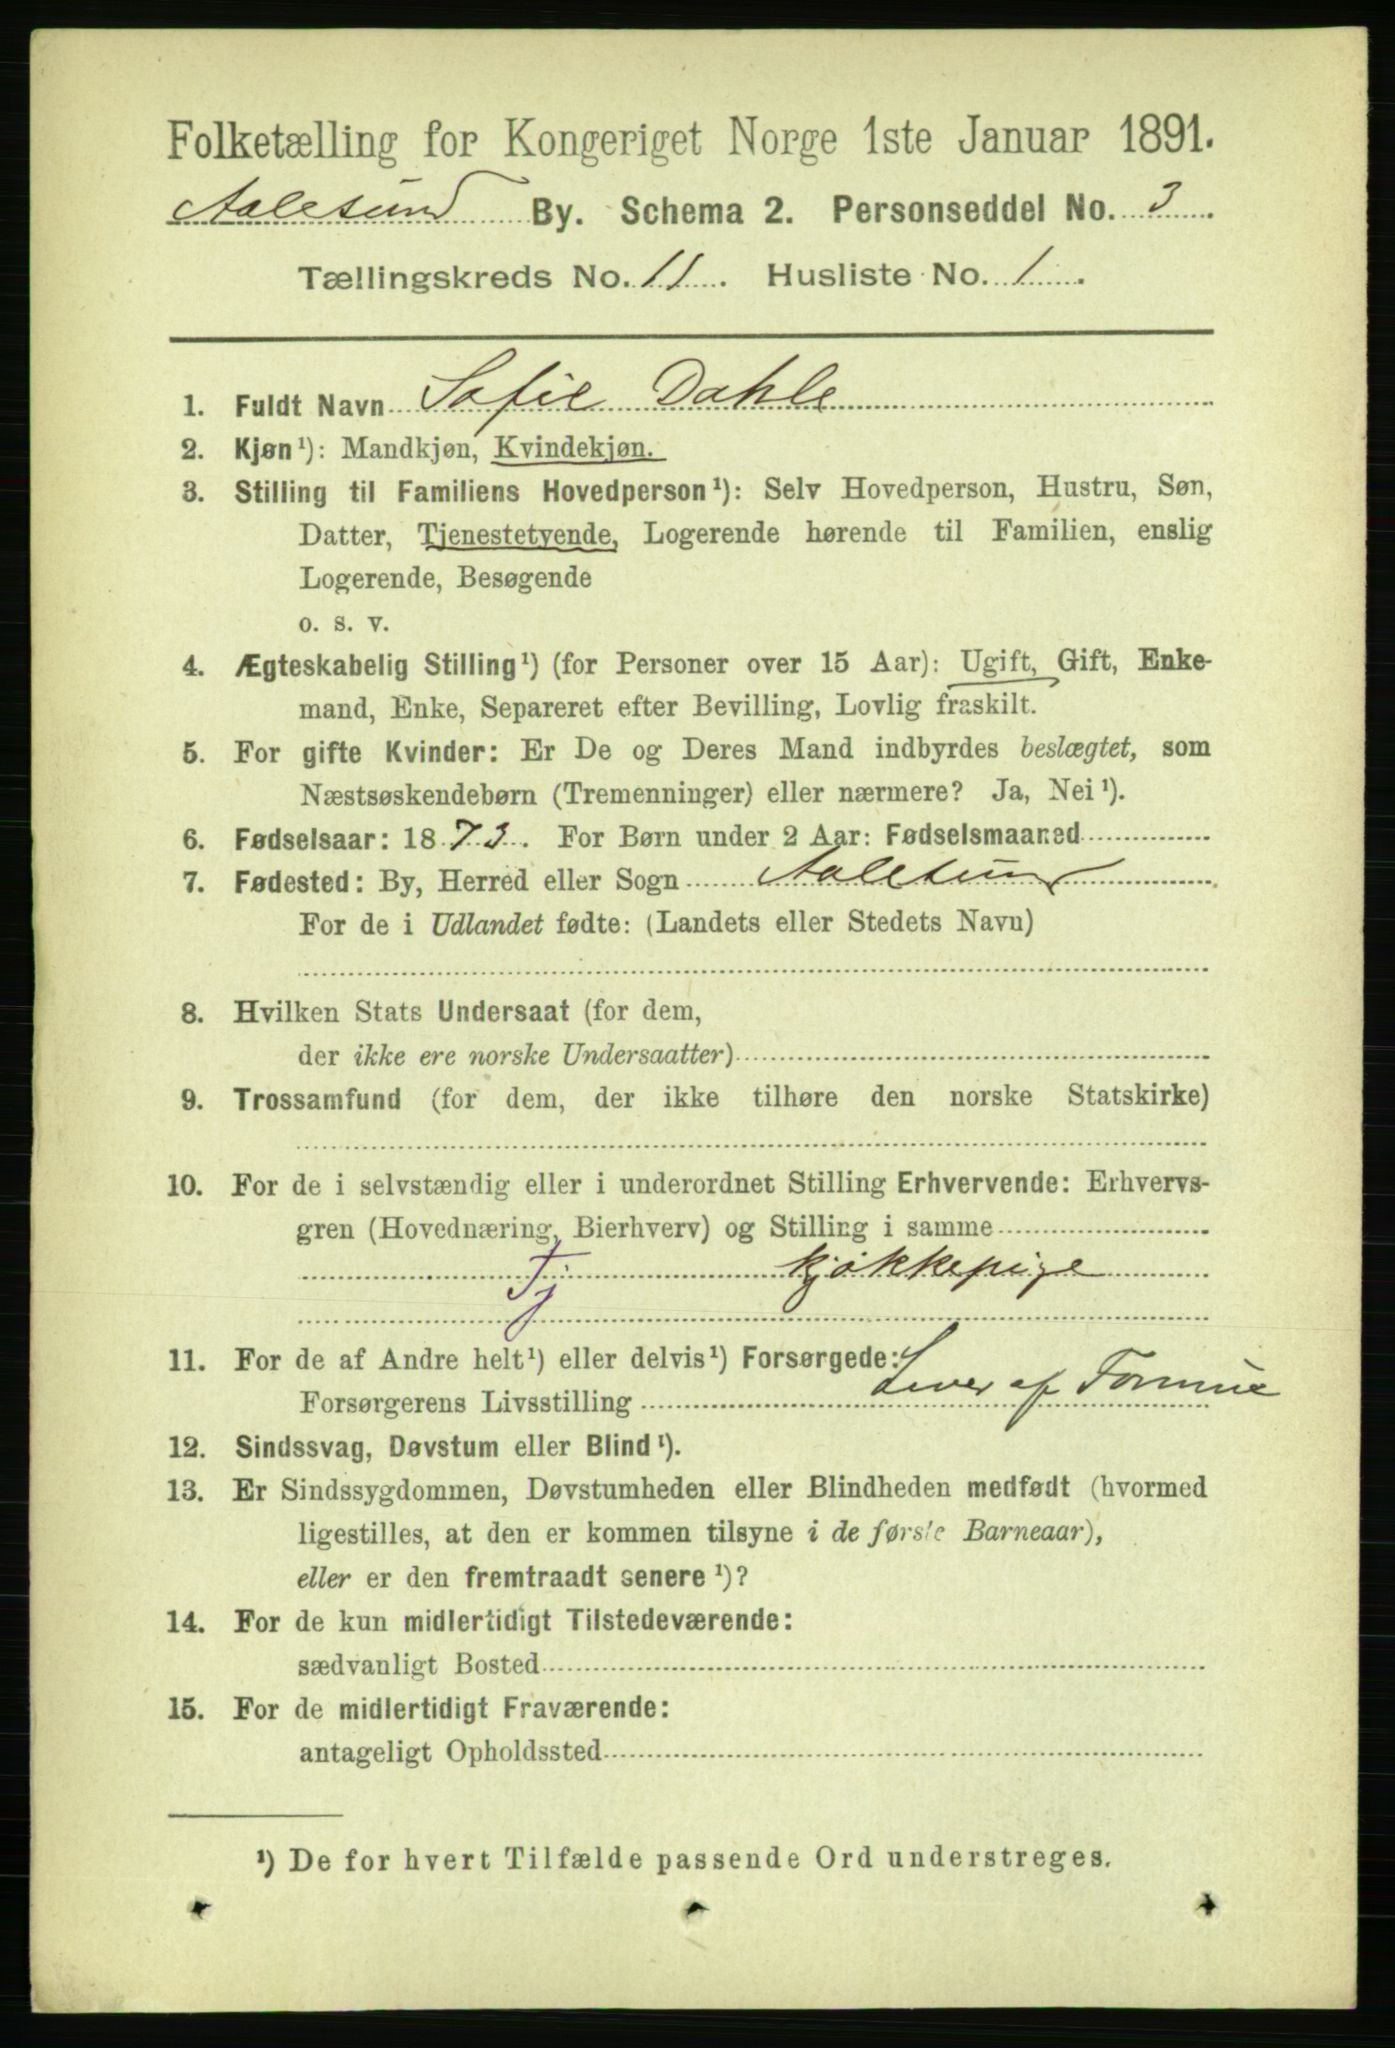 Folketælling for Kongeriget Norge 1ste Januar 1891.
Aalesund By. Schema 2. Personseddel No. 3
Tællingskreds No. 11. Husliste No. 1.
1. Fuldt Navn Sofie Dahle
2. Kjøn¹): Mandkjøn, Kvindekjøn.
3. Stilling til Familiens Hovedperson¹): Selv Hovedperson, Hustru, Søn,
Datter, Tjenestetyende, Logerende hørende til Familien, enslig
Logerende, Besøgende
o. s. v.
4. Ægteskabelig Stilling¹) (for Personer over 15 Aar): Ugift, Gift, Enke-
mand, Enke, Separeret efter Bevilling, Lovlig fraskilt.
5. For gifte Kvinder: Er De og Deres Mand indbyrdes beslægtet, som
Næstsøskendebørn (Tremenninger) eller nærmere? Ja, Nei¹).
6. Fødselsaar: 1873. For Børn under 2 Aar: Fødselsmaaned
7. Fødested: By, Herred eller Sogn Aalesund
For de i Udlandet fødte: (Landets eller Stedets Navn)
8. Hvilken Stats Undersaat (for dem,
der ikke ere norske Undersaatter)
9. Trossamfund (for dem, der ikke tilhøre den norske Statskirke)
10. For de i selvstændig eller i underordnet Stilling Erhvervende: Erhvervs-
gren (Hovednæring, Bierhverv) og Stilling i samme
Tj kjøkkepige
11. For de af Andre helt¹) eller delvis¹) Forsørgede:
Forsørgerens Livsstilling Lever af Formue
12. Sindssvag, Døvstum eller Blind¹).
13. Er Sindssygdommen, Døvstumheden eller Blindheden medfødt (hvormed
ligestilles, at den er kommen tilsyne i de første Barneaar),
eller er den fremtraadt senere¹)?
14. For de kun midlertidigt Tilstedeværende:
sædvanligt Bosted
15. For de midlertidigt Fraværende:
antageligt Opholdssted
¹) De for hvert Tilfælde passende Ord understreges.